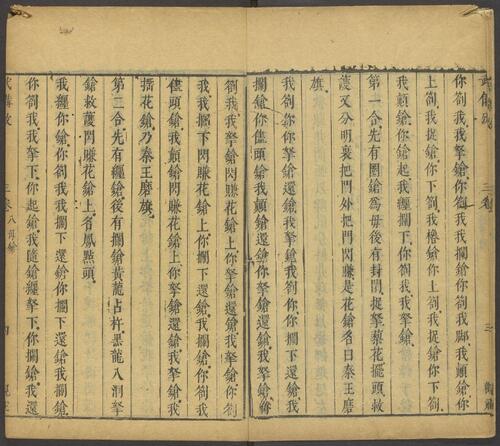 你劄我我拏鎗你劄我我攔鎗你劄我我郎我顛鎗你
上劄我捉鎗你下劄我櫓鎗你上劄我捉鎗你下劄
我顛鎗你鎗起我纏攔下你劄我我拏我鎗
第一合先有圈鎗爲母後有封閉捉拏梨花擺頭救
護又分明裏把門外把門閃賺是花鎗名曰秦王磨
旗
我劄你你攔下還鎗我拏鎗我劄你你攔下還鎗我
攔鎗你儘頭鎗我顛鎗還鎗你拏鎗還鎗我拏鎗你
劄我我拏鎗閃賺花鎗上你拏鎗還鎗我攔鎗你劄
我我攔下閃賺花鎗上你攔下還鎗我攔鎗你劄我
儘頭鎗我顛鎗閃賺花鎗上你拏鎗還鎗我拏鎗我
搖花鎗乃秦王磨旗
第二合先有纏鎗後有攔鎗黃龍占杵黑龍入洞拏
鎗救護閃賺花鎗上名鳳點頭
我纏你鎗你劄我我攔下還鎗你攔下還鎗我攔鎗
你劄我我拏下你起鎗我隨鎗纏拏下你攔鎗我還
三卷
八母鎗
四